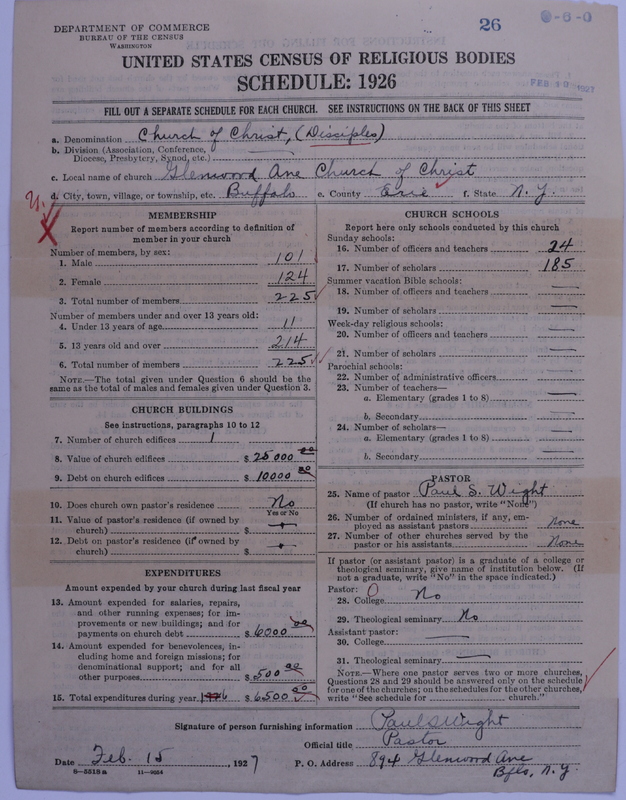 DEPARTMENT OF COMMERCE
BUREAU OF THE CENSUS
WASHINGTON
26
UNITED STATES CENSUS OF RELIGIOUS BODIES
SCHEDULE: 1926
FEB 19 1927
FILL OUT A SEPARATE SCHEDULE FOR EACH CHURCH. SEE INSTRUCTIONS ON THE BACK OF THIS SHEET
a. Denomination Church of Christ, (Disciples)
b. Division (Association, Conference,
Diocese, Presbytery, Synod, etc.)
c. Local name of church Glenwood Ave Church of Christ
d. City, town, village, or township, etc. Buffalo e. County Erie f. State N. Y.
MEMBERSHIP
Report number of members according to definition of
member in your church
Number of members, by sex:
1. Male 101
2. Female 124
3. Total number of members 225
Number of members under and over 13 years old:
4. Under 13 years of age 11
5. 13 years old and over 214
6. Total number of members 225
NOTE.—The total given under Question 6 should be the
same as the total of males and females given under Question 3.
CHURCH BUILDINGS
See instructions, paragraphs 10 to 12
7. Number of church edifices 1
8. Value of church edifices $ 25000 00
9. Debt on church edifices $ 10000 00
10. Does church own pastor's residence No
Yes or No
11. Value of pastor's residence (if owned by
church) $
12. Debt on pastor's residence (if owned by
church) $
EXPENDITURES
Amount expended by your church during last fiscal year
13. Amount expended for salaries, repairs,
and other running expenses; for im-
provements or new buildings; and for
payments on church debt $ 6000 00
14. Amount expended for benevolences, in-
cluding home and foreign missions; for
denominational support; and for all
other purposes $ 500 00
15. Total expenditures during year $ 6500 00
CHURCH SCHOOLS
Report here only schools conducted by this church
Sunday schools:
16. Number of officers and teachers 24
17. Number of scholars 185
Summer vacation Bible schools:
18. Number of officers and teachers —
19. Number of scholars —
Week-day religious schools:
20. Number of officers and teachers —
21. Number of scholars —
Parochial schools:
22. Number of administrative officers —
23. Number of teachers—
a. Elementary (grades 1 to 8) —
b. Secondary —
24. Number of scholars—
a. Elementary (grades 1 to 8) —
b. Secondary —
PASTOR
25. Name of pastor Paul S. Wight
(If church has no pastor, write "None")
26. Number of ordained ministers, if any, em-
ployed as assistant pastors None
27. Number of other churches served by the
pastor or his assistants None
If pastor (or assistant pastor) is a graduate of a college or
theological seminary, give name of institution below. (If
not a graduate, write "No" in the space indicated.)
Pastor:
28. College No
29. Theological seminary No
Assistant pastor:
30. College —
31. Theological seminary —
NOTE.—Where one pastor serves two or more churches,
Questions 28 and 29 should be answered only on the schedule
for one of the churches; on the schedules for the other churches,
write "See schedule for church."
Signature of person furnishing information Paul S Wight
Official title Pastor
Date Feb. 15, 1927 P. O. Address 894 Glenwood Ave
Bflo, N. Y.
8—5518a 11—9554